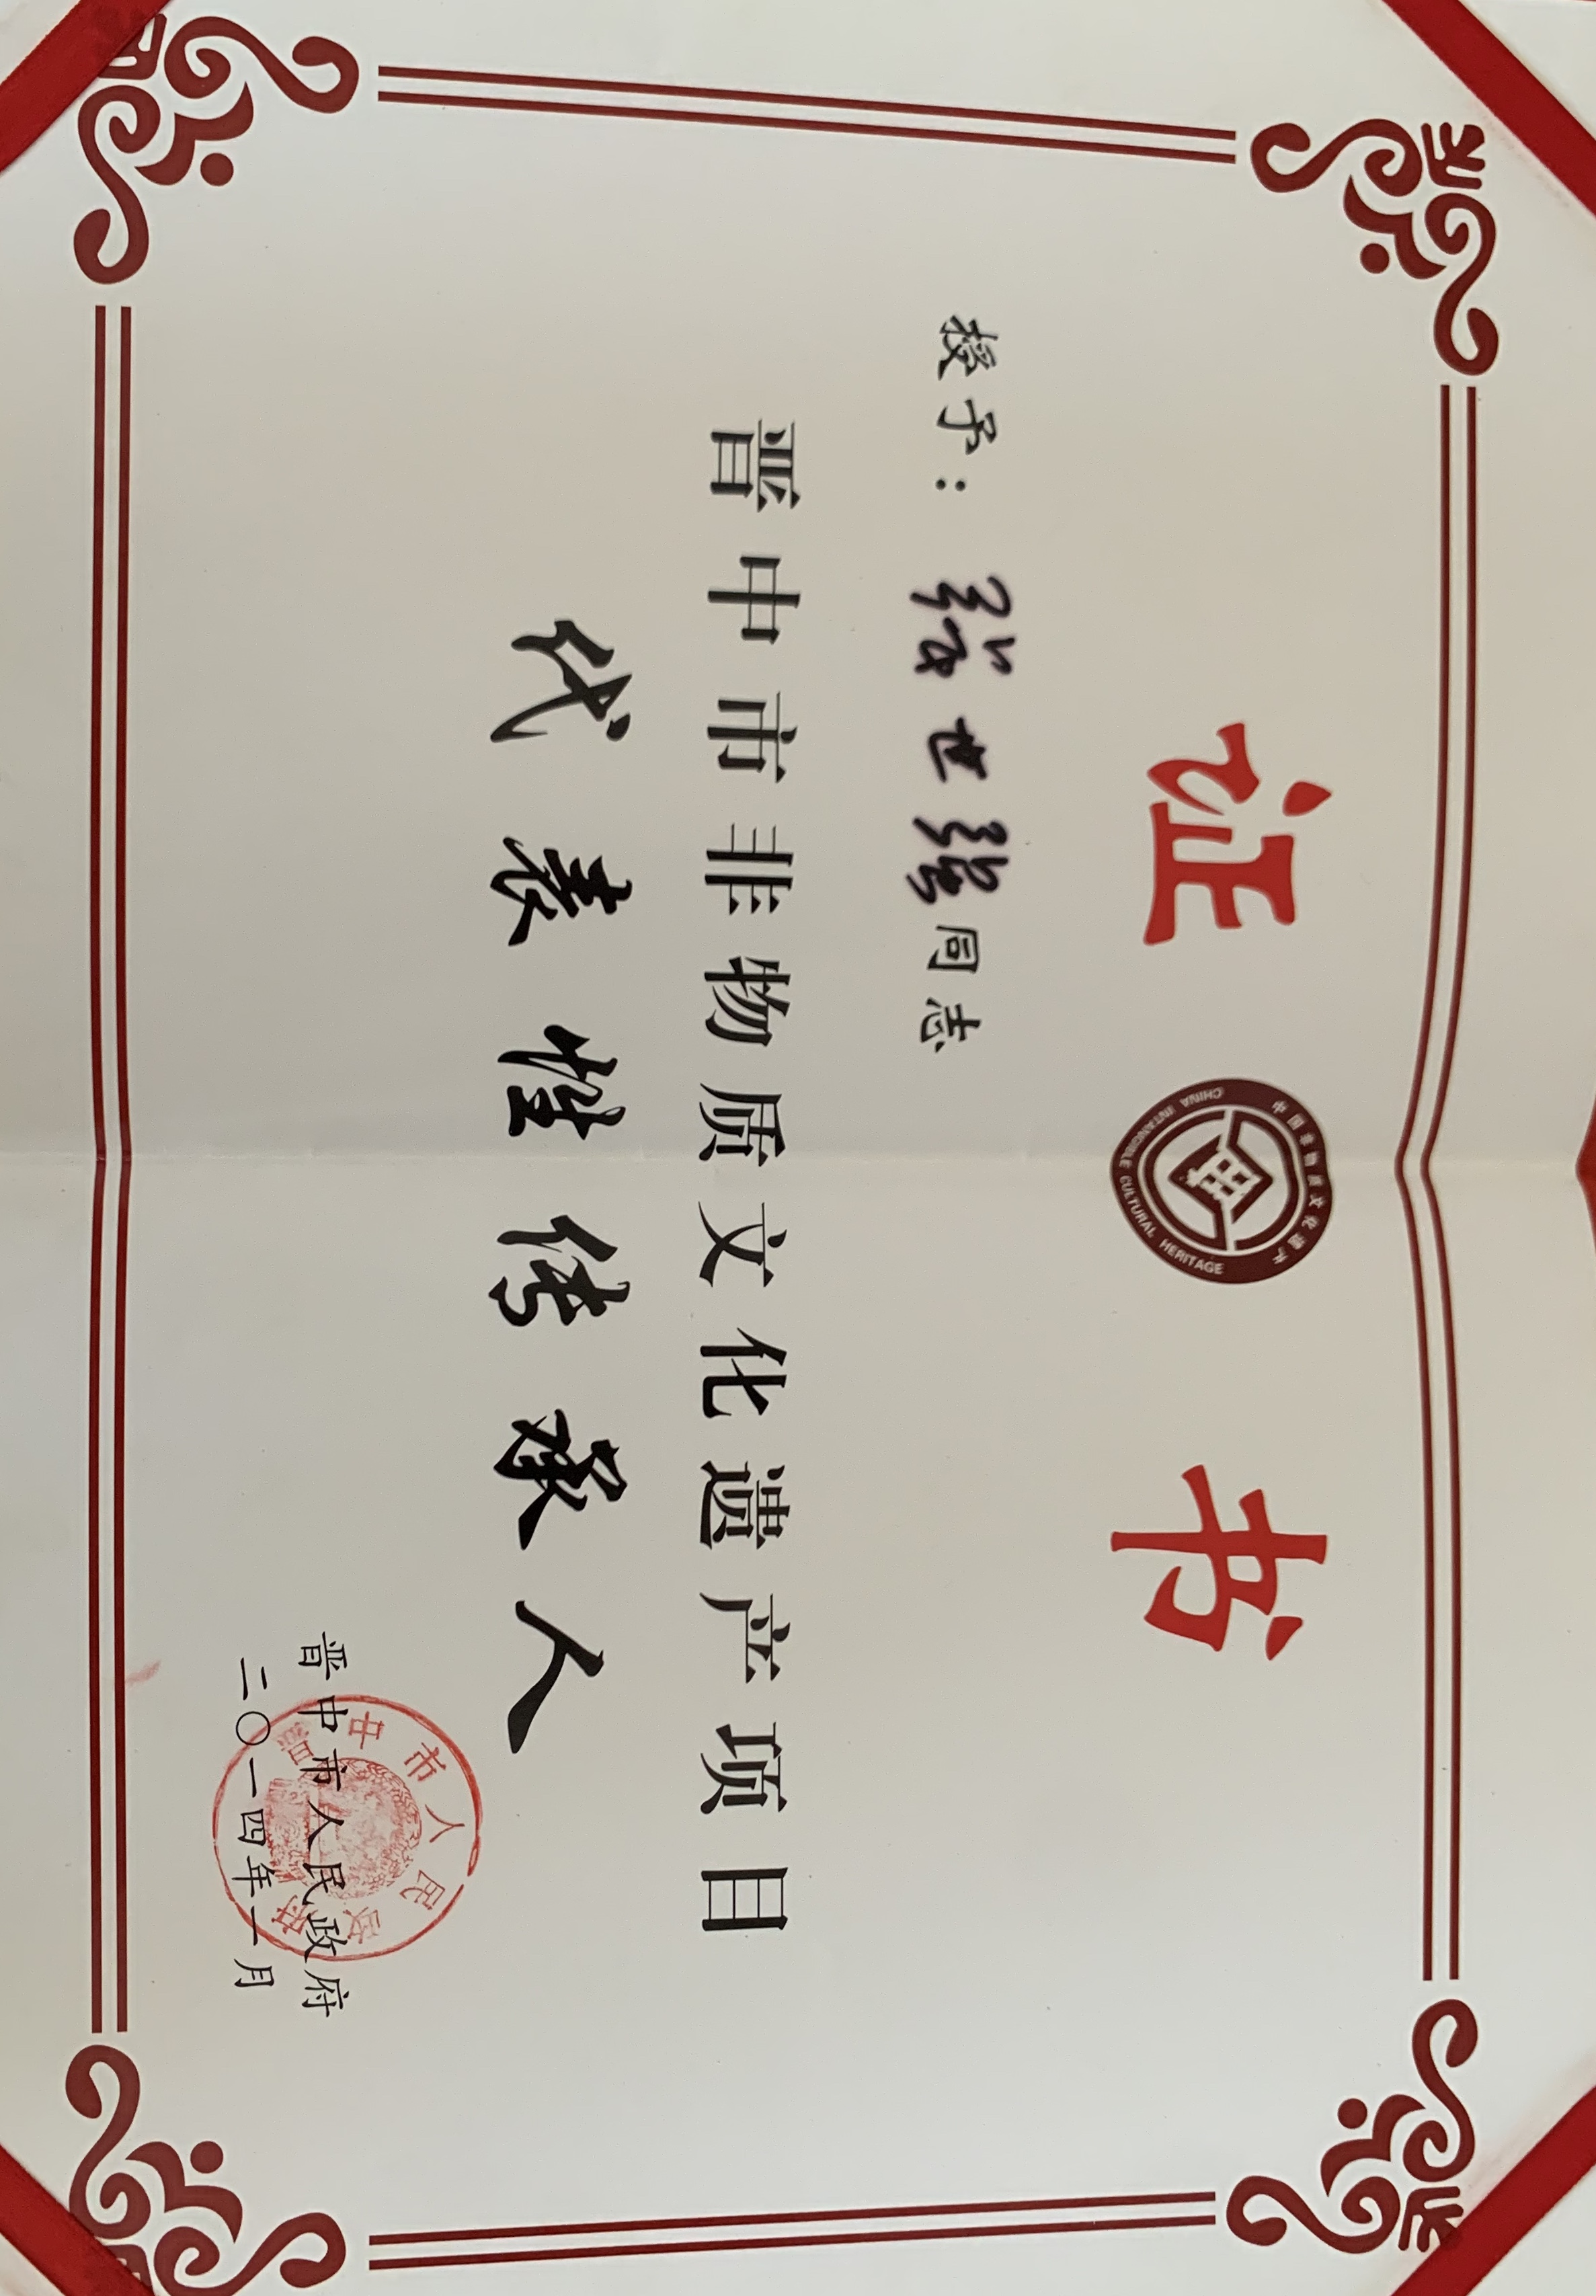 证 书
中国非物质文化遗产
CHINA INTANGIBLE CULTURAL HERITAGE
授予： 世 同志
晋中市非物质文化遗产项目
代表性传承人
晋中市人民政府
二〇一四年一月
晋中市人民政府